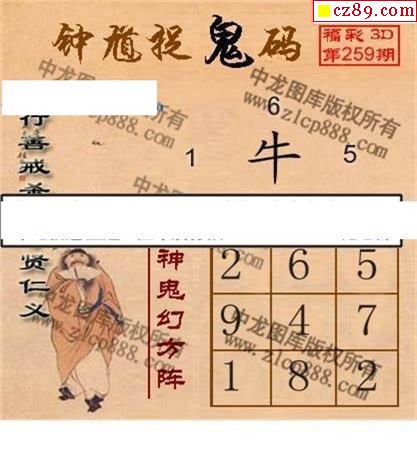 cz89.com
钟馗捉鬼码
福彩 3D
第259期
中龙图库版权所有
www.zlcp888.com
6
1 牛 5
行善戒杀
贤仁义
神鬼幻方阵
2 6 5
9 4 7
1 8 2
中龙图库版权所有
www.zlcp888.com